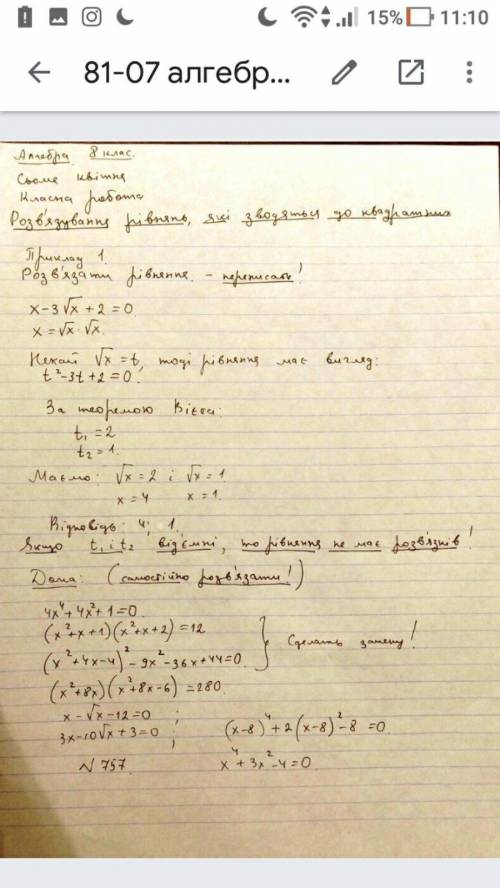 15% 11:10
81-07 алгебр...
Алгебра 8 клас.
Сьоме квітня
Класна робота
Розв'язування рівнянь, які зводяться до квадратних
Приклад 1.
Розв'язати рівняння. - переписать!
x-3√x+2=0
x=√x·√x.
Нехай √x=t, тоді рівняння має вигляд:
t²-3t+2=0.
За теоремою Вієта:
t₁=2
t₂=1.
Маємо: √x=2 і √x=1
x=4 x=1.
Відповідь: 4; 1.
Якщо t₁ і t₂ від'ємні, то рівняння не має розв'язків!
Дома: (самостійно розв'язати!)
4x⁴+4x²+1=0.
(x²+x+1)(x²+x+2)=12
(x²+4x-4)²-9x²-36x+44=0. } Сделать замену!
(x²+8x)(x²+8x-6)=280.
x-√x-12=0 ;
3x-10√x+3=0 ; (x-8)⁴+2(x-8)²-8=0
N 757 x⁴+3x²-4=0